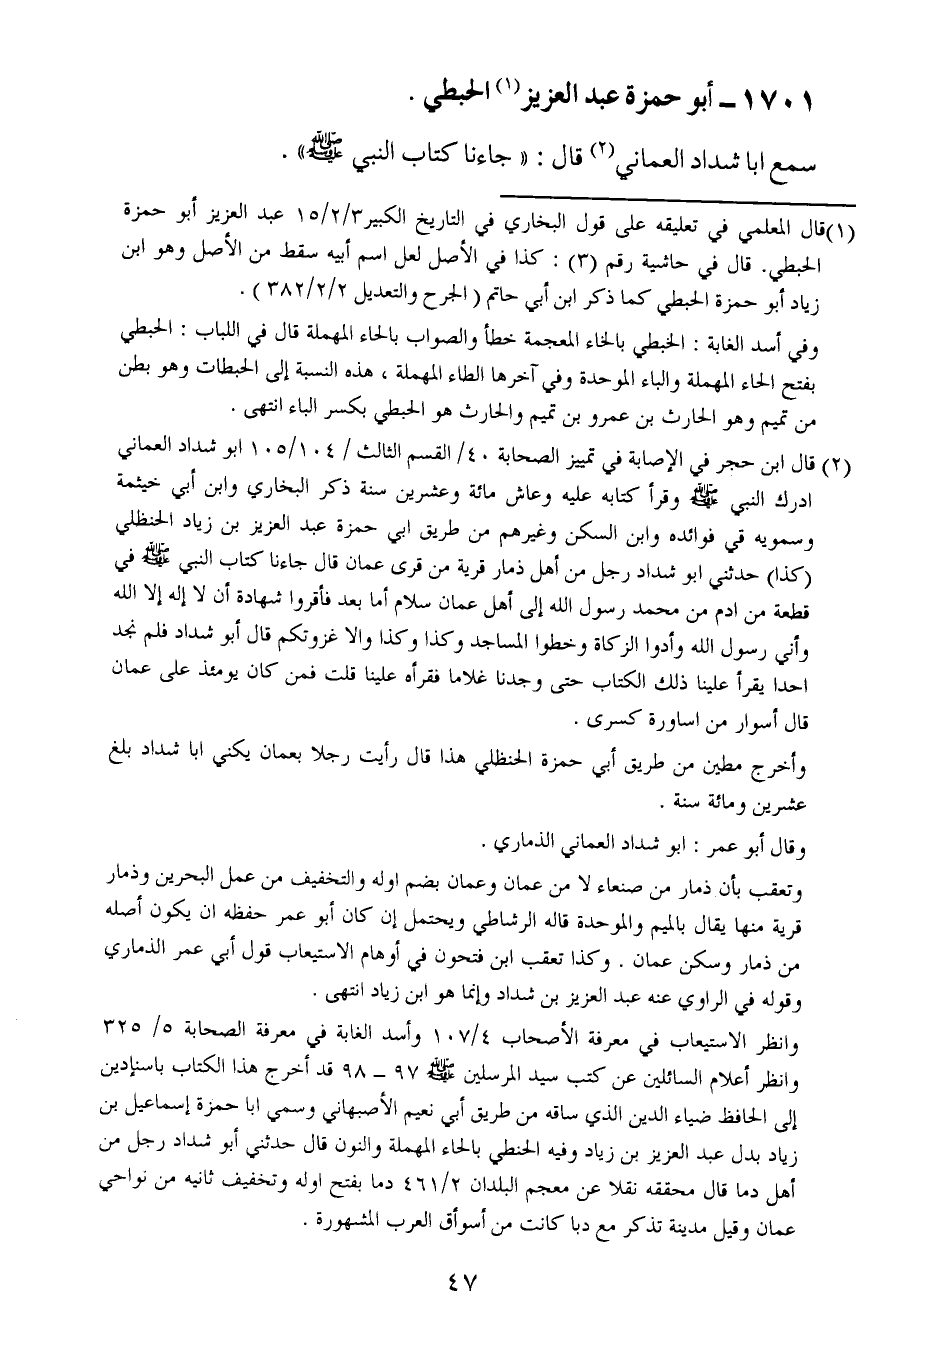 ١٧٠١ ـ أبو حمزة عبد العزيز(١) الحبطي .
سمع ابا شداد العماني(٢) قال : « جاءنا كتاب النبي ﷺ» .
(١) قال المعلمي في تعليقه على قول البخاري في التاريخ الكبير ١٥/٢/٣ عبد العزيز أبو حمزة
الحبطي. قال في حاشية رقم (٣) : كذا في الأصل لعل اسم أبيه سقط من الأصل وهو ابن
زياد أبو حمزة الحبطي كما ذكر ابن أبي حاتم ( الجرح والتعديل ٣٨٢/٢/٢ ) .
وفي أسد الغابة : الخبطي بالخاء المعجمة خطأ والصواب بالحاء المهملة قال في اللباب : الحبطي
بفتح الحاء المهملة والباء الموحدة وفي آخرها الطاء المهملة ، هذه النسبة إلى الحبطات وهو بطن
من تميم وهو الحارث بن عمرو بن تميم والحارث هو الحبطي بكسر الباء انتهى .
(٢) قال ابن حجر في الإصابة في تمييز الصحابة ٤٠/ القسم الثالث / ١٠٥/١٠٤ ابو شداد العماني
ادرك النبي ﷺ وقرأ كتابه عليه وعاش مائة وعشرين سنة ذكر البخاري وابن أبي خيثمة
وسمويه قي فوائده وابن السكن وغيرهم من طريق ابي حمزة عبد العزيز بن زياد الحنظلي
(كذا) حدثني ابو شداد رجل من أهل ذمار قرية من قرى عمان قال جاءنا كتاب النبي ﷺ في
قطعة من ادم من محمد رسول الله إلى أهل عمان سلام أما بعد فأقروا شهادة أن لا إله إلا الله
وأني رسول الله وأدوا الزكاة وخطوا المساجد وكذا وكذا والا غزوتكم قال أبو شداد فلم نجد
احدا يقرأ علينا ذلك الكتاب حتى وجدنا غلاما فقرأه علينا قلت فمن كان يومئذ على عمان
قال أسوار من اساورة كسرى .
وأخرج مطين من طريق أبي حمزة الحنظلي هذا قال رأيت رجلا بعمان يكني ابا شداد بلغ
عشرين ومائة سنة .
وقال أبو عمر : ابو شداد العماني الذماري .
وتعقب بأن ذمار من صنعاء لا من عمان وعمان بضم اوله والتخفيف من عمل البحرين وذمار
قرية منها يقال بالميم والموحدة قاله الرشاطي ويحتمل إن كان أبو عمر حفظه ان يكون أصله
من ذمار وسكن عمان . وكذا تعقب ابن فتحون في أوهام الاستيعاب قول أبي عمر الذماري
وقوله في الراوي عنه عبد العزيز بن شداد وإنما هو ابن زياد انتهى .
وانظر الاستيعاب في معرفة الأصحاب ١٠٧/٤ وأسد الغابة في معرفة الصحابة ٥/ ٣٢٥
وانظر أعلام السائلين عن كتب سيد المرسلين ﷺ ٩٧ ـ ٩٨ قد أخرج هذا الكتاب باسنادين
إلى الحافظ ضياء الدين الذي ساقه من طريق أبي نعيم الأصبهاني وسمي ابا حمزة إسماعيل بن
زياد بدل عبد العزيز بن زياد وفيه الحنطي بالحاء المهملة والنون قال حدثني أبو شداد رجل من
أهل دما قال محققه نقلا عن معجم البلدان ٤٦١/٢ دما بفتح اوله وتخفيف ثانيه من نواحي
عمان وقيل مدينة تذكر مع دبا كانت من أسوأق العرب المشهورة .
٤٧